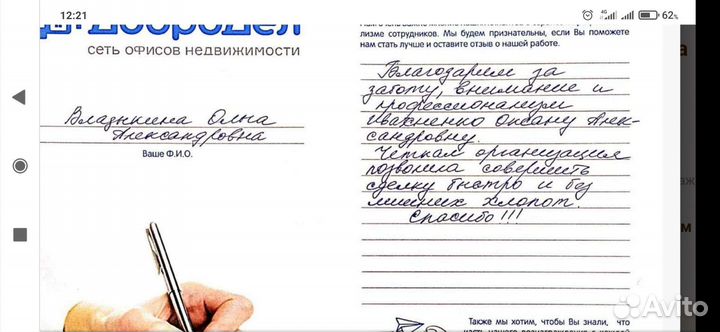 12:21
4G
62%
Добродел
сеть офисов недвижимости
Владыкина Олна
Александровна
Ваше Ф.И.О.
лизме сотрудников. Мы будем признательны, если Вы поможете
нам стать лучше и оставите отзыв о нашей работе.
Благодарим за
заботу, внимание и
профессионализм
Ивахненко Оксану Алек-
сандровну.
Четкая организация
позволила совершить
сделку быстро и без
лишних хлопот.
Спасибо!!!
Также мы хотим, чтобы Вы знали, что
Avito